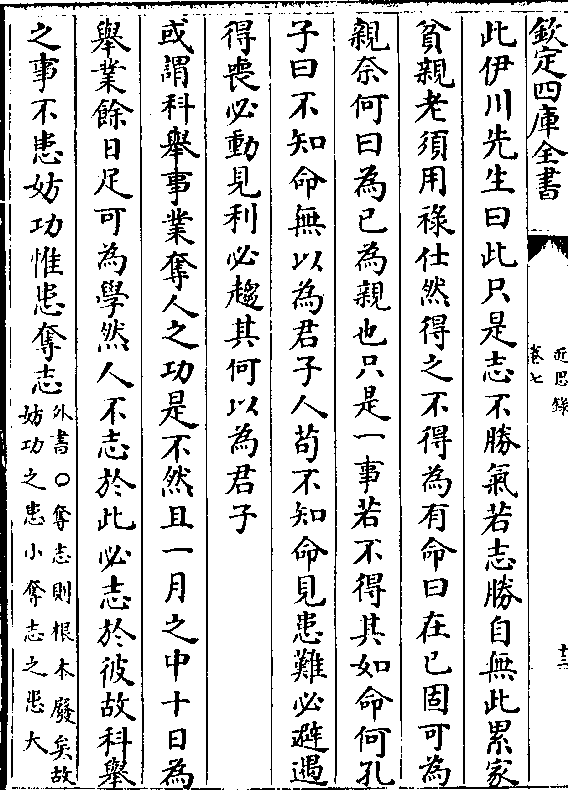 欽定四庫全書
近思録
卷七
十三
此伊川先生曰此只是志不勝氣若志勝自無此累家
貧親老須用祿仕然得之不得為有命曰在已固可為
親奈何曰為已為親也只是一事若不得其如命何孔
子曰不知命無以為君子人苟不知命見患難必避遇
得喪必動見利必趨其何以為君子
或謂科舉事業奪人之功是不然且一月之中十日為
舉業餘日足可為學然人不志於此必志於彼故科舉
之事不患妨功惟患奪志
外書○奪志則根本廢矣故
妨功之患小奪志之患大